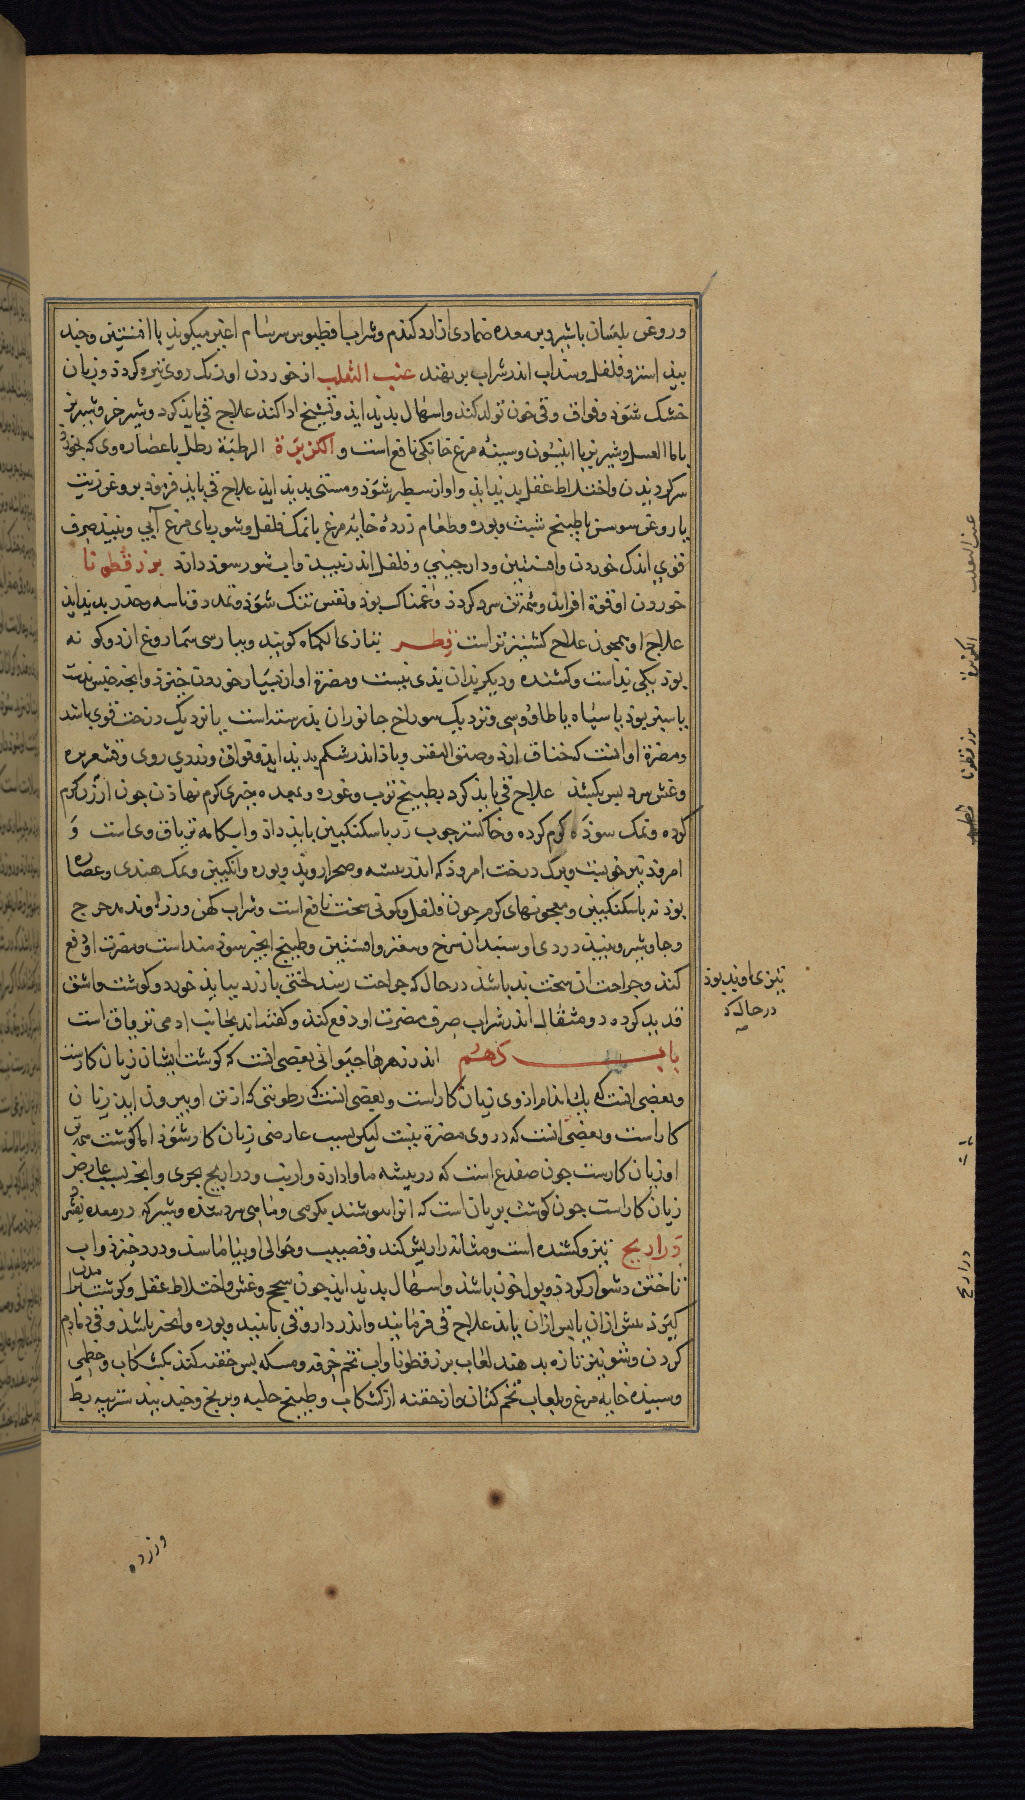 وروغن بلسان باشیر و بر معده ضمادی از آرد کندم و شراب افطیموس سرسام اعنی میکویند با افسنتین و جند
بید استر و فلفل و سداب اندر شراب بر نهند عنب الثعلب از خوردن او رنک روی تیره کردد و زبان
خشک شوذ و فواق و قی خون تولد کند و اسهال بدید اید و تشنج ادا کند علاج قی باید کرد و شیر خر و شیر بز
با ما العسل و شیر بز با انیسون و سینه مرغ خانکی نافع است و الکزبرة الرطبة رطل یا عصاره وی که بخورد
سر کردیدن و اختلاط عقل بدید اید و اواز سطبر شوذ و مستی بدید اید علاج قی باید فرمود بروغن زیت
یا روغن سوسن با طبیخ شبث و بوره و طعام زرده خایه مرغ با نمک و فلفل و شوربای مرغ آبی و نبید صرف
قوی اندک خوردن و افسنتین و دارچینی و فلفل اندر نبید و آب شور سوذ دارد بزر قطونا
خوردن او قوة افراید و همه تن سرد کردد و غمناک بوذ و نفس تنک شوذ و تمدد و تاسه و خدر بدید اید
علاج او همجون علاج کشنیز تر است فطر بتازی الکماه کویند و بپارسی سماروغ از دو کونه
بوذ یکی بد است و کشنده و دیکر بدان بدی نیست و مضرة او از بسیار خوردن خیزد و آنچه جنس بدست
یا سبز بوذ یا سیاه یا طاووسی و نزدیک سوراخ جانوران بد رسته است یا نزدیک درخت قوی باشد
و مضرة او انست که خناق ارد و ضیق النفس و باد اندر شکم بدید اید و فواق و زردی روی و قشعریره
و غشی سرد بس بکشد علاج قی باید کرد بطبیخ ترب و غوره و بمعده چیزی کرم نهادن جون ارزن کرم
کرده و نمک سوذه کرم کرده و خاکستر چوب رز با سکنکبین باید داد و ابکامه تریاق وی است و
امروذ نیز خوبست و برک درخت امروذ که اندر بیشه و صحرا روید و بوره و انکبین و نمک هندی و عصاره
بوذنه با سکنکبین و معجونهای کرم جون فلفل و کمونی سخت نافع است و شراب کهن و زراوند مدحرج
و جاوشیر و نبید دردی و سپندان سرخ و سعتر و افسنتین و طبیخ انجیر سوذمند است و مضرت او دفع
کند و جراحت ان سخت بد باشد در حال که جراحت رسد لختی بازرد بباید خورد و کوشت و اشق
قدید کرده دو مثقال اندر شراب صرف مضرت او دفع کند و کفته اند نجاست ادمی تریاق است
باب دهم اندر زهرها حیوانی بعضی انست که کوشت ایشان زیان کارست
و بعضی انست که یک اندام از وی زیان کارست و بعضی انست که رطوبتی که از تن او بیرون اید زیان
کار است و بعضی انست که در وی مضرة نیست لیکن بسبب عارضی زیان کار شوذ اما کوشت همه تن
او زیان کارست جون ضفدع است که در بیشه ماوا دارد و ارنب و دراریج بحری و انچه بسبب عارض
زیان کار است جون کوشت بریان است که انرا بپوشند بکرمی و ماهی سرد شده و شیر که در معده بفسرد
دراریج تیز و کشنده است و مثانه را ریش کند و قضیب و حوالی او بیاماسد و درد خیزد و اب
تاختن دشوار کردد و بول خون باشد و اسهال بدید اید جون سحج و غشی و اختلاط عقل و کوشت مردن
کیرد بیش از ان یا پس از ان باید علاج قی فرمایند و اندر دارو قی با نبید و بوره و انجیر باشد و قی دمادم
کردن و شو نیز تازه بدهند لعاب بزر قطونا و اب تخم خرفه و مسکه پس حقنه کنند بکشکاب و خطمی
و سپیده خایه مرغ و بلعاب تخم کتان و از حقنه از کشکاب و طبیخ حلبه و برنج و خید بیند ستر پیه بط
تیزی او بد بوذ
در حال که
صه
عنب الثعلب
الکزبرة
بزر قطونا
فطر
باب
دراریج
و زرده